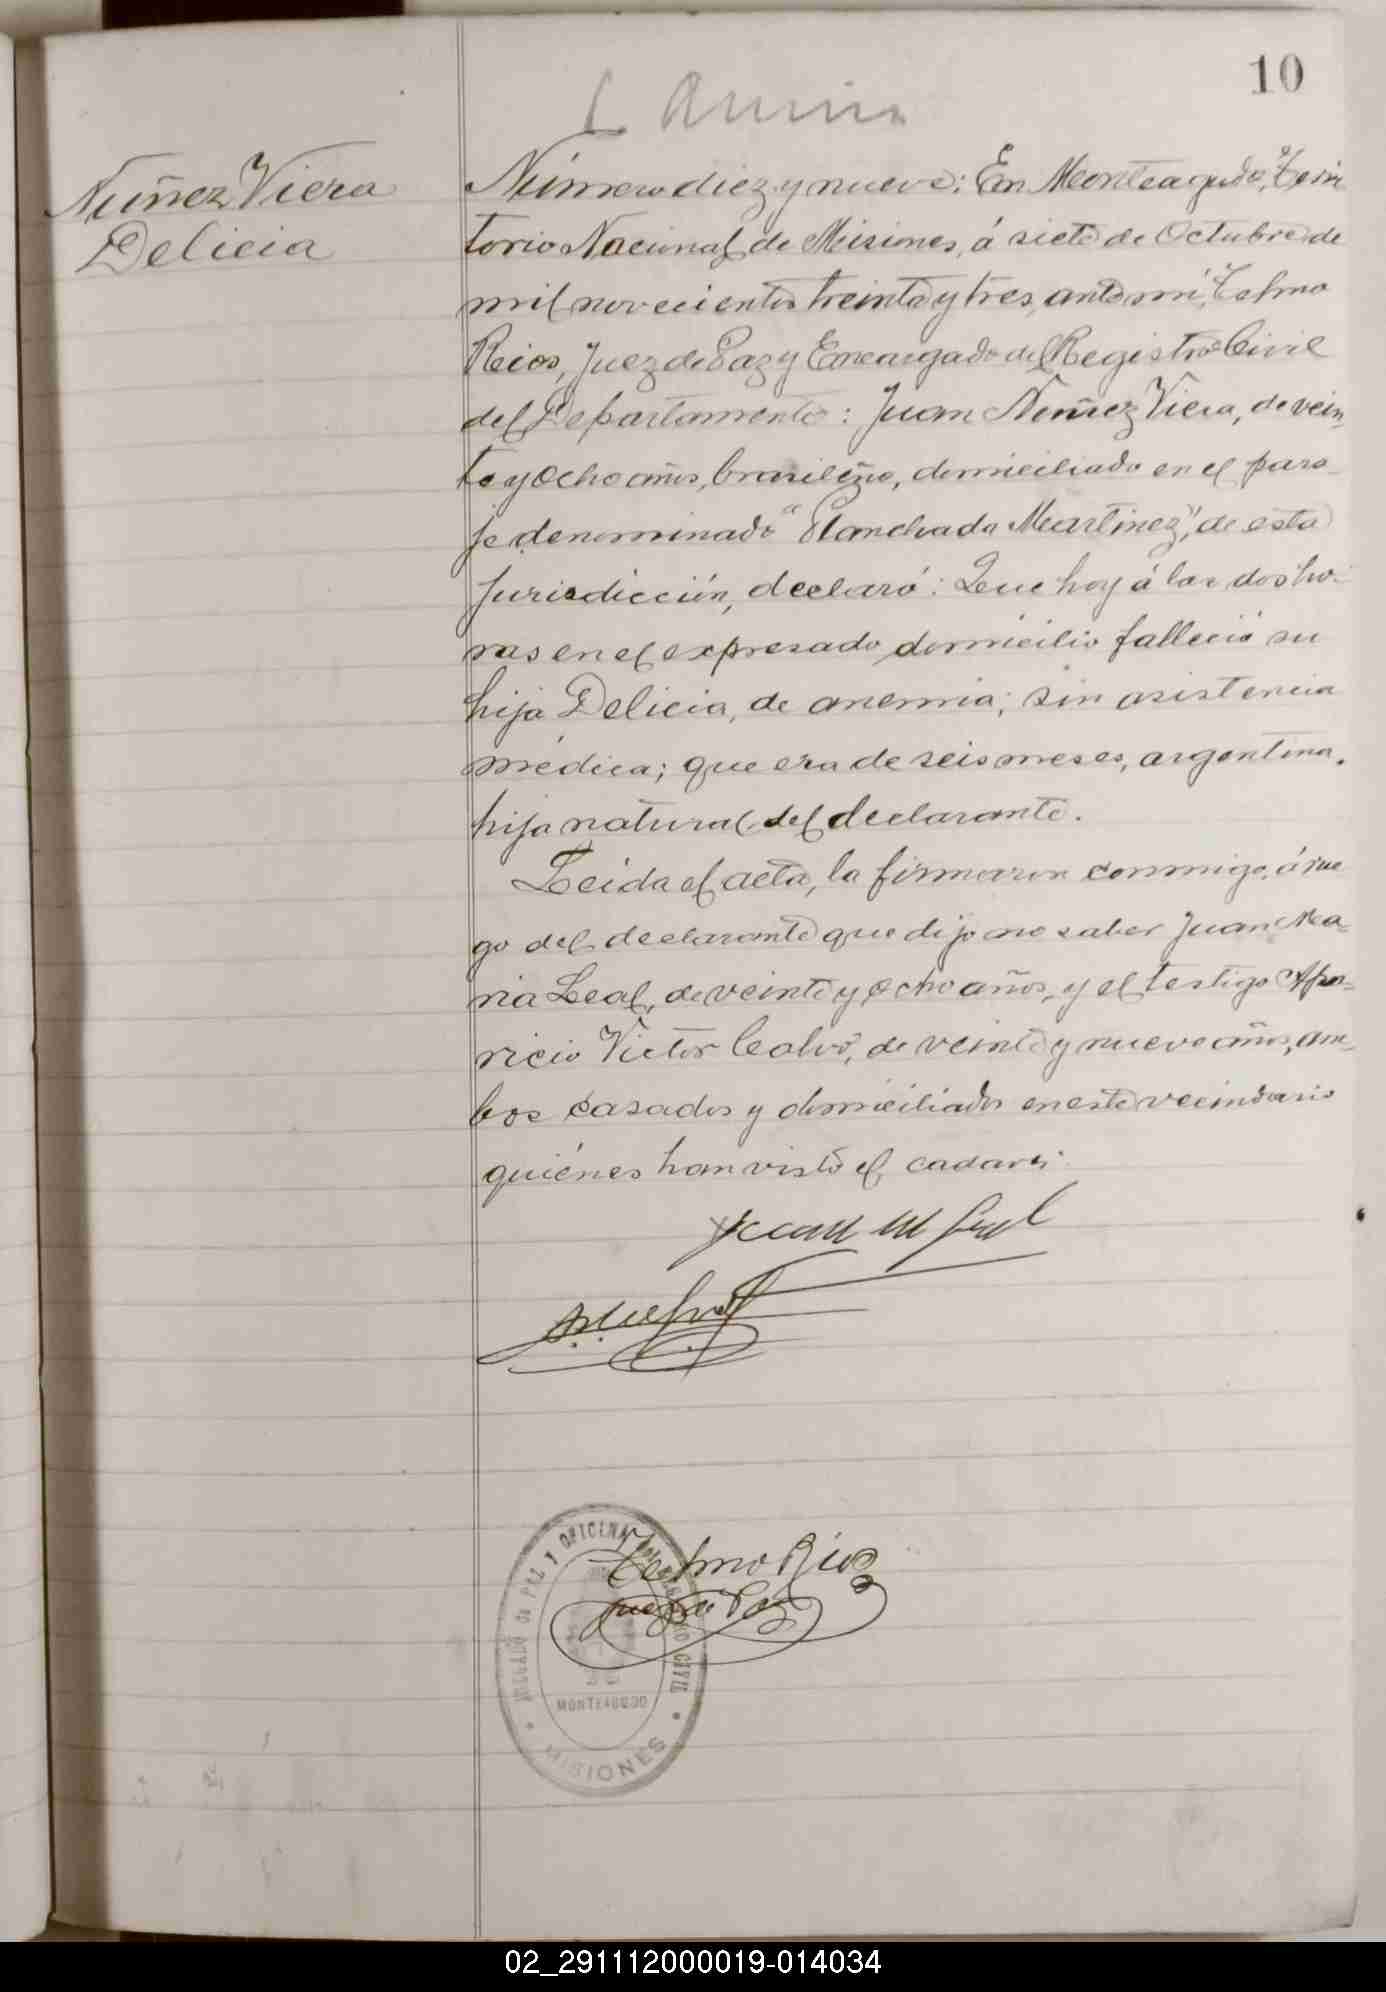 10
Núñez Viera
Delicia
Número diez y nueve: En Monteagudo, Terri
torio Nacional de Misiones, á siete de Octubre de
mil novecientos treinta y tres, ante mí, Telmo
Rios, Juez de Paz y Encargado del Registro Civil
del Departamento: Juan Núñez Viera, de vein-
te y ocho años, brasileño, domiciliado en el para-
je denominado "Planchada Martinez", de esta
jurisdicción, declaró: Que hoy á las dos ho-
ras en el expresado domicilio falleció su
hija Delicia, de anemia; sin asistencia
médica; que era de seis meses, argentina,
hija natural del declarante.
Leída el acta, la firmaron conmigo, á rue
go del declarante que dijo no saber Juan Ma-
ria Leal, de veinte y ocho años, y el testigo Apa-
ricio Victor Calvo, de veinte y nueve años, am-
bos casados y domiciliados en este vecindario
quiénes han visto el cadaver.
Juan M Leal
Telmo Rios
Juez de Paz
JUZGADO de PAZ Y OFICINA del REGISTRO CIVIL
MONTEAGUDO
MISIONES
02_291112000019-014034